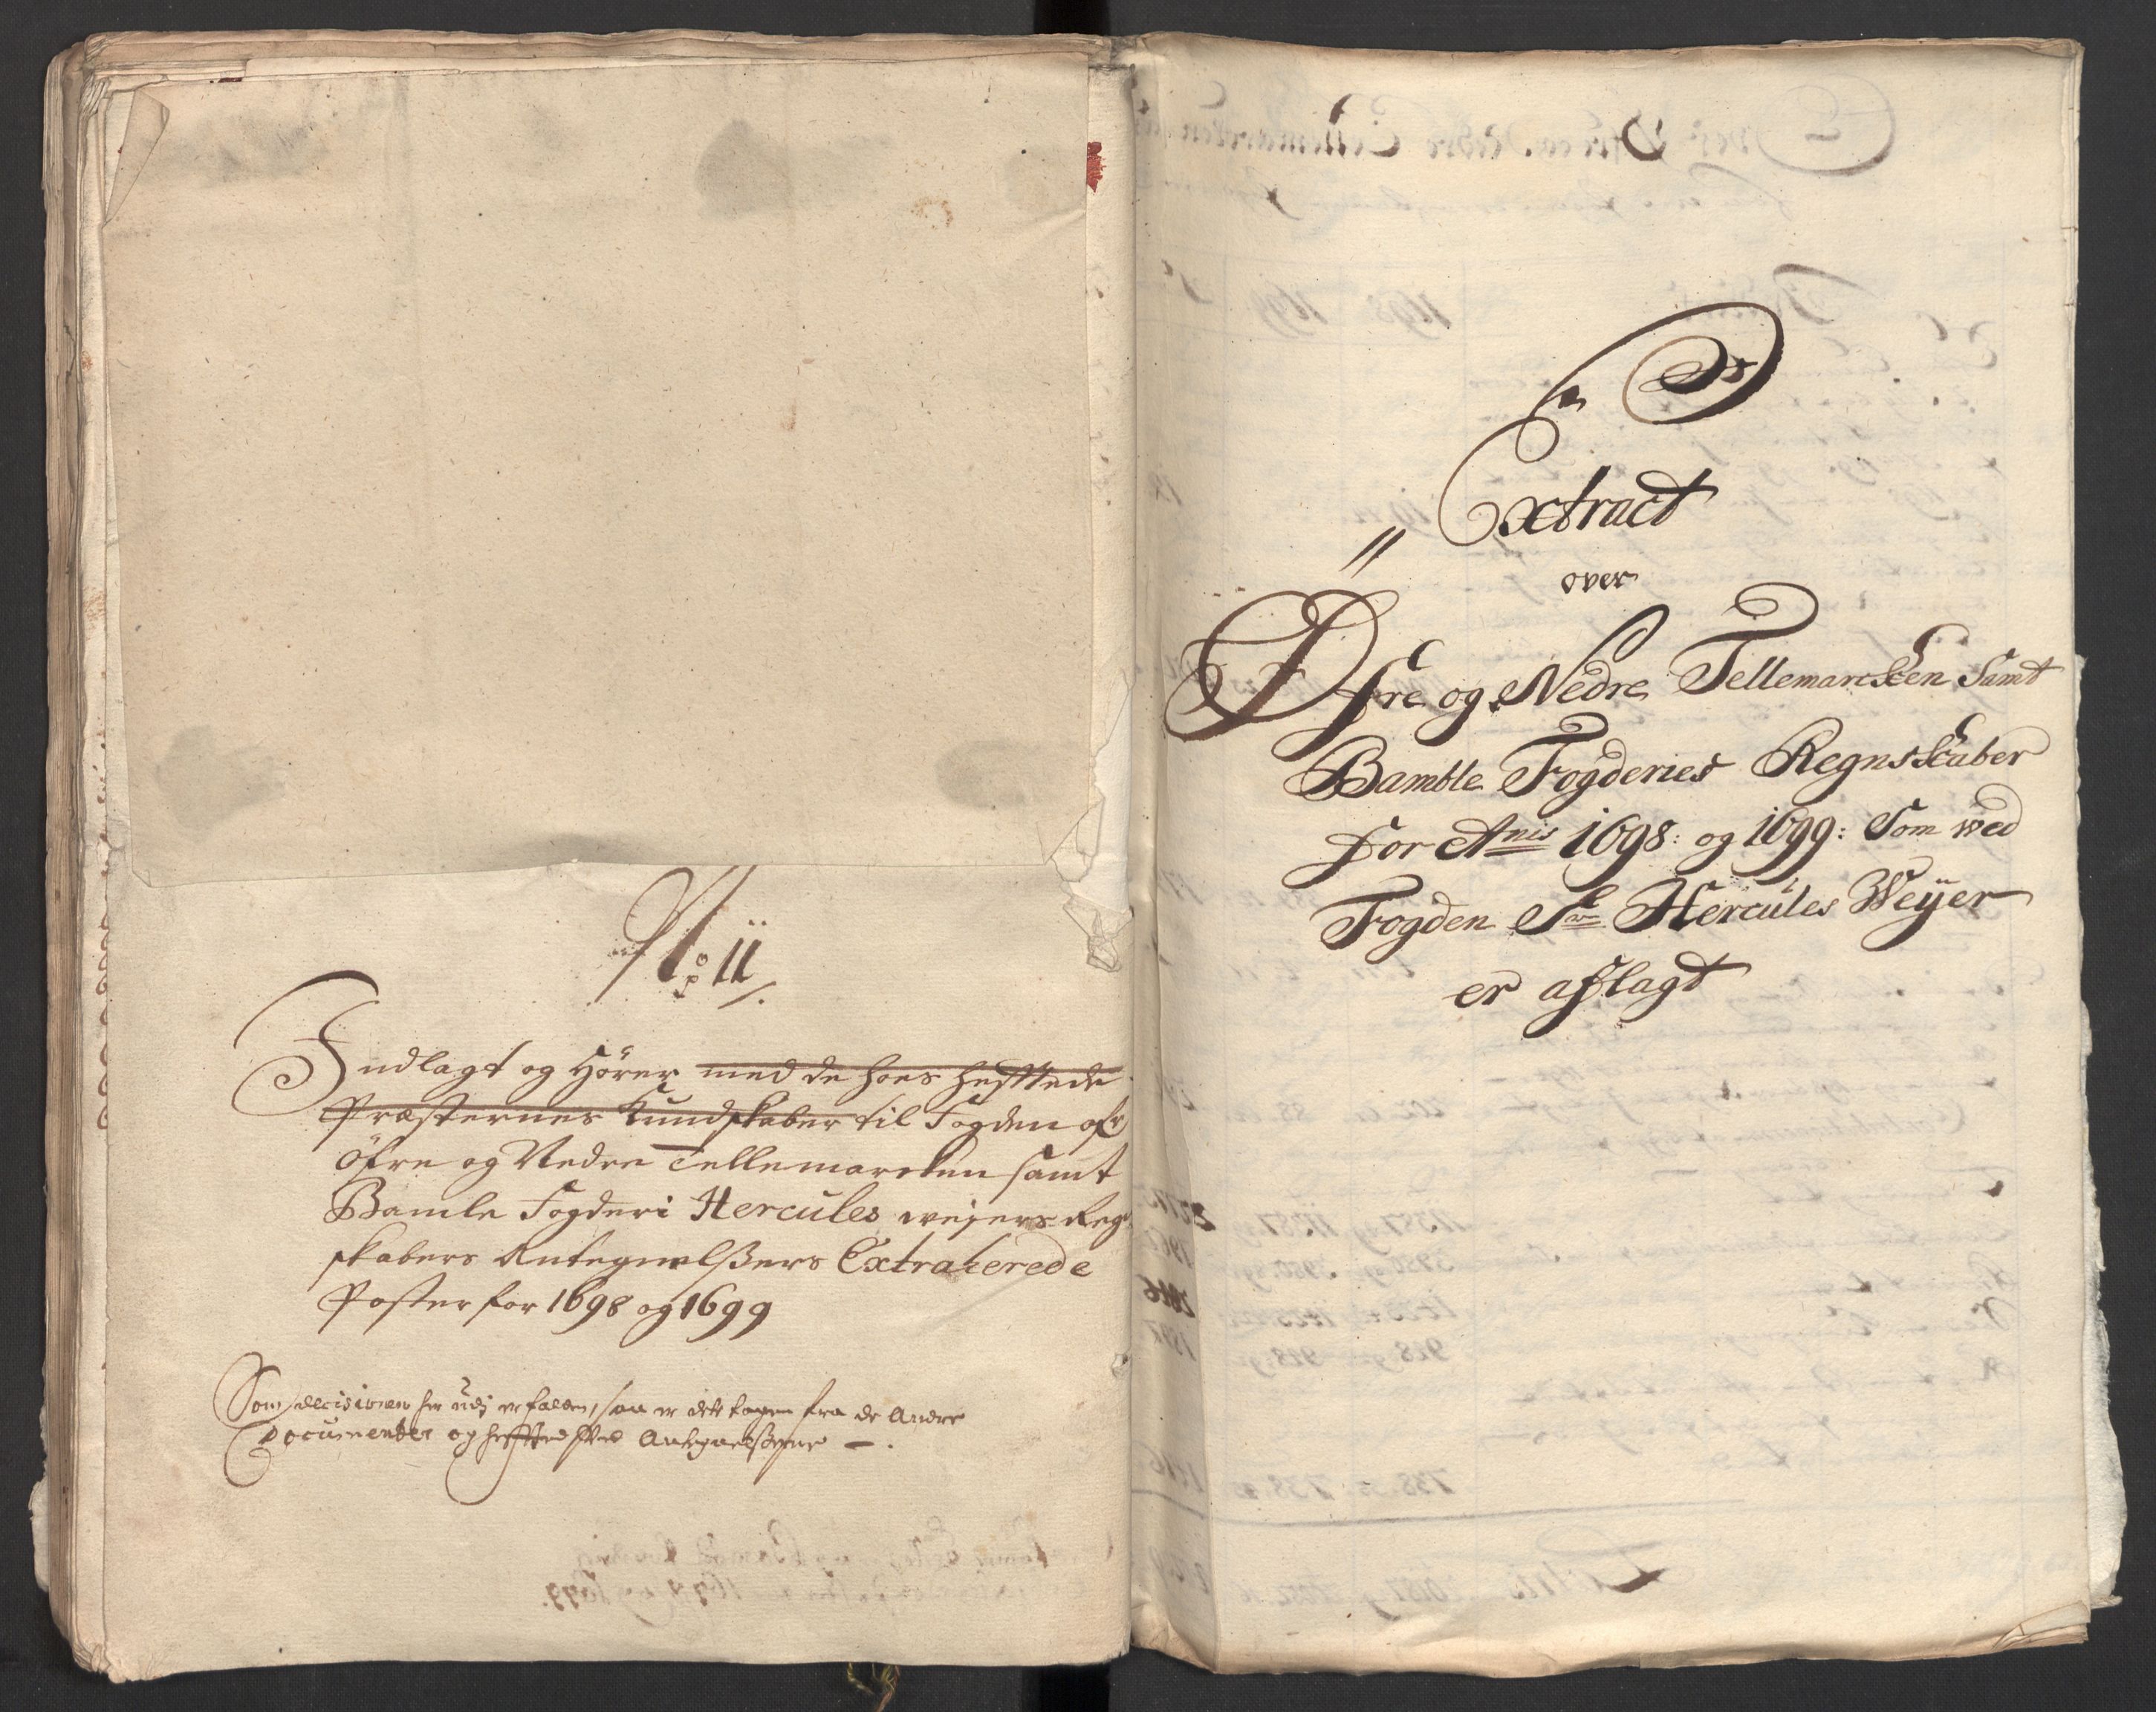 No: 11
Indlagt og Hörer med de hoes heftede
Præsternes Kundskaber til Fogden ofr
Öfre og Nedre Tellemarcken samt
Bamle Fogderi Hercules weyers Reg
skabers Antegnelßers Extraherede
Poster for 1698 og 1699
Som decisionen her udj er falden, saa er dette tagen fra de Andre
Documenter og hefftet ved Antegnelßerne
Extract
over
Øfre og Nedre Tellemarcken Samt
Bamble Fogderies Regnskaber
for Anis 1698: og 1699: Som wed
Fogden Sr Hercules Weÿer
er aflagt